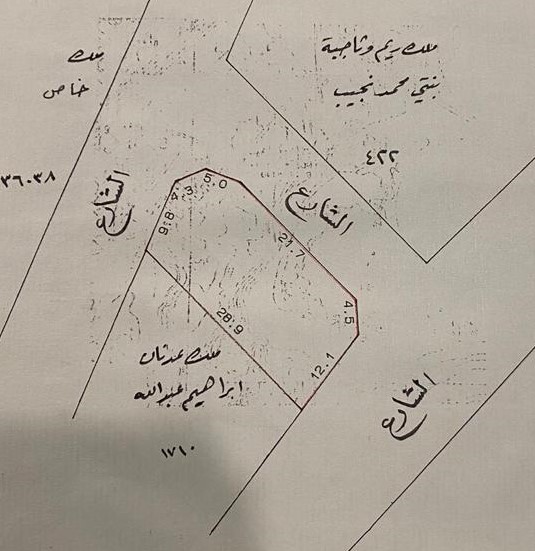 ملك
خاص
ملك ريم وناجية
بنتي محمد نجيب
٤٢٢
٣٦٠٣٨
الشارع
الشارع
4.3
5.0
9.8
21.7
4.5
28.9
12.1
ملك عدنان
ابراهيم عبدالله
١٧١٠
الشارع